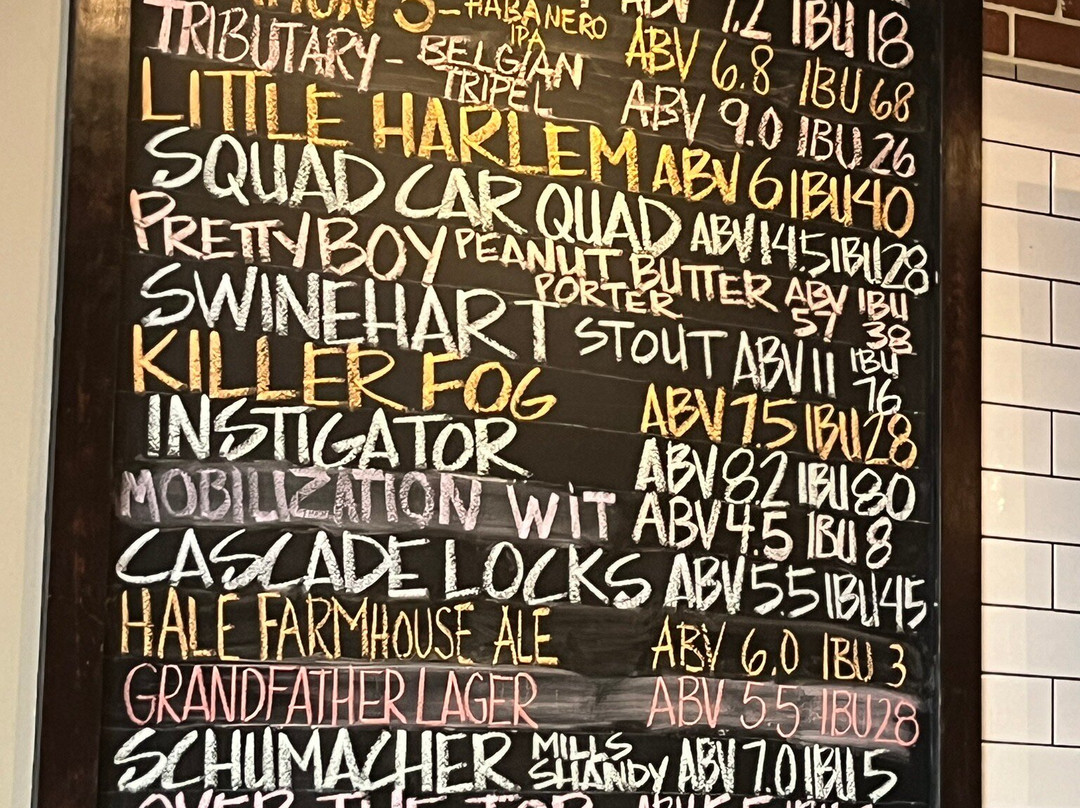 ABV 7.2 IBU 18
3 - HABANERO IPA ABV 6.8 IBU 68
TRIBUTARY - BELGIAN TRIPEL ABV 9.0 IBU 26
LITTLE HARLEM ABV 6 IBU 40
SQUAD CAR QUAD ABV 14.5 IBU 28
PRETTY BOY PEANUT BUTTER PORTER ABV 57 IBU 38
SWINEHART STOUT ABV 11 IBU 76
KILLER FOG ABV 7.5 IBU 28
INSTIGATOR ABV 8.2 IBU 80
MOBILIZATION WIT ABV 4.5 IBU 8
CASCADE LOCKS ABV 5.5 IBU 45
HALE FARMHOUSE ALE ABV 6.0 IBU 3
GRANDFATHER LAGER ABV 5.5 IBU 28
SCHUMACHER MILLS SHANDY ABV 7.0 IBU 5
OVER THE TOP